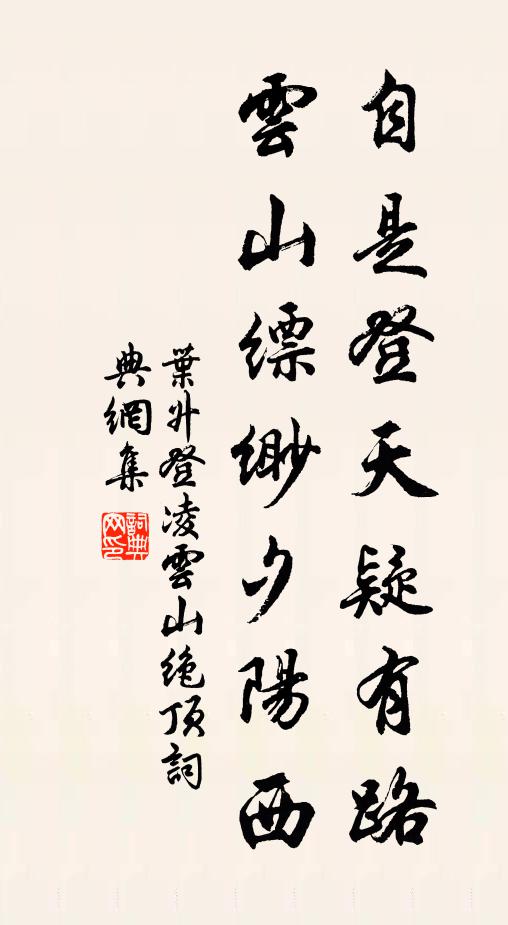 自是登天疑有路
雲山縹緲夕陽西
葉外登凌雲山绝頂詞
典網集
詞典
网印